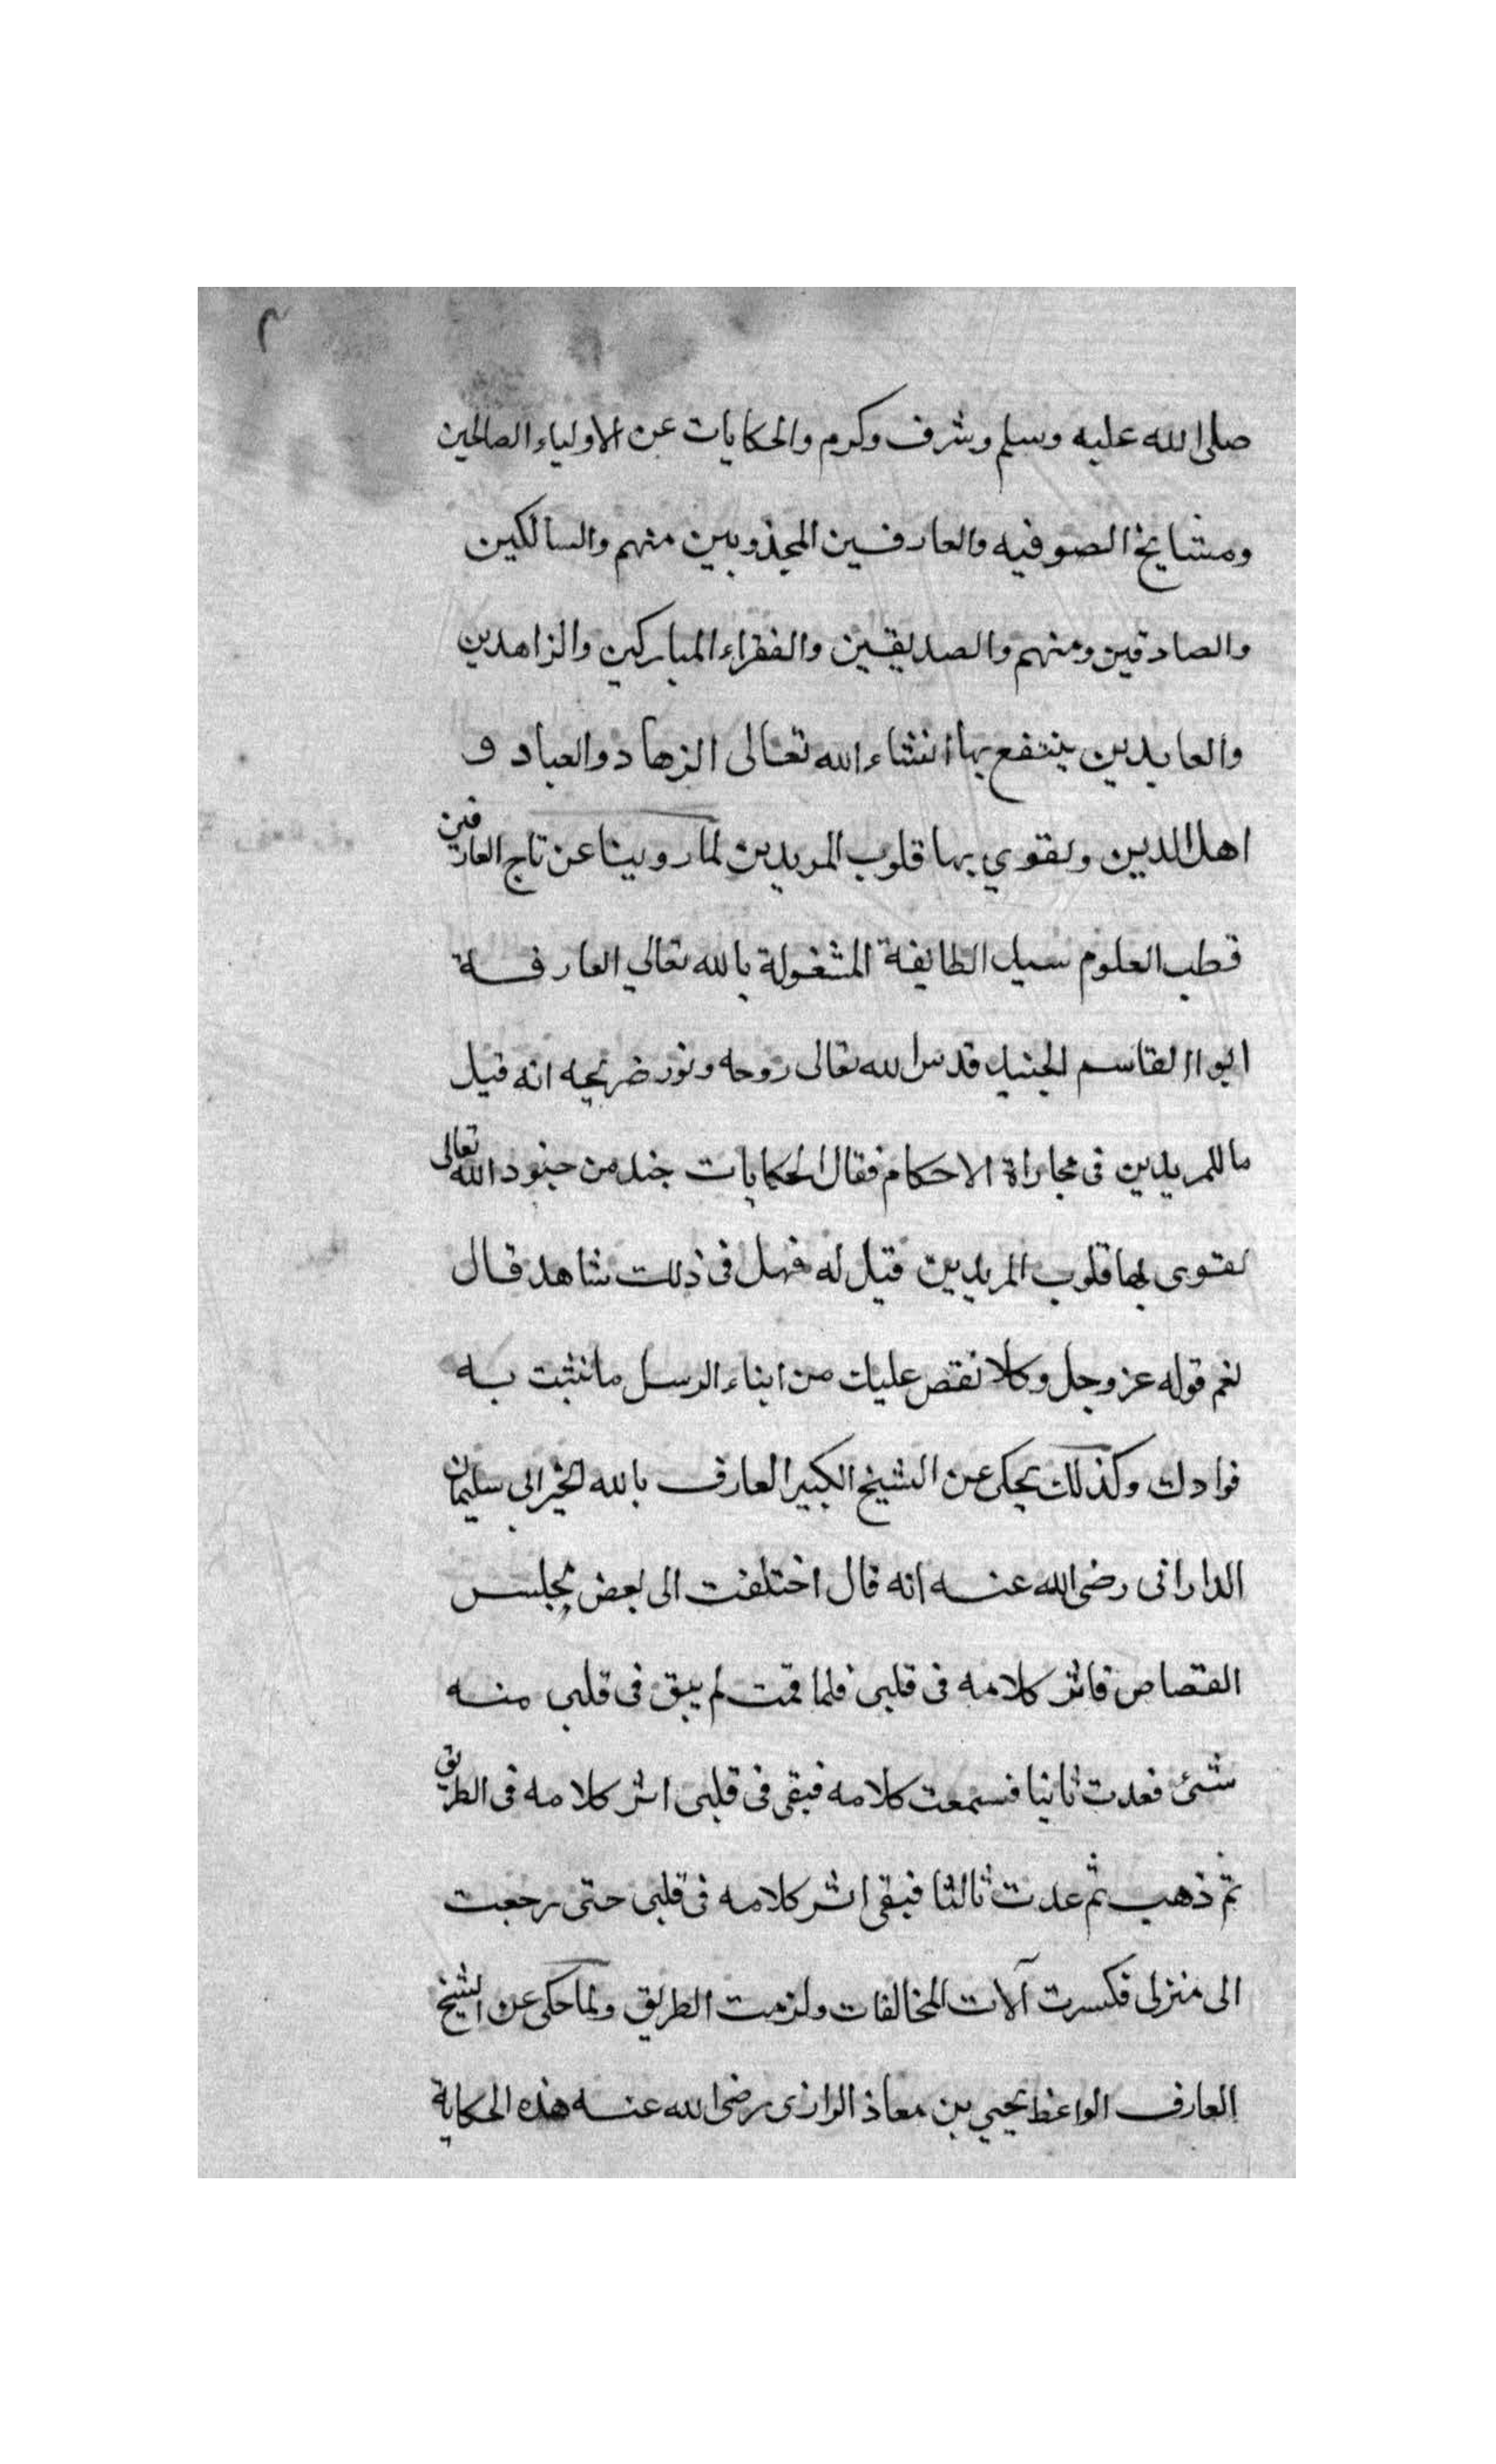 ٢
صلى الله عليه وسلم وشرف وكرم والحكايات عن الاولياء الصالحين
ومشايخ الصوفيه والعارفين المجذوبين منهم والسالكين
والصادقين ومنهم والصديقين والفقراء المباركين والزاهدين
والعابدين ينتفع بها انشاء الله تعالى الزهاد والعباد و
اهل الدين ولقوي بها قلوب المريدين لما روينا عن تاج العارفين
قطب العلوم سيد الطايفة المشغولة بالله تعالي العارفة
ابوا القاسم الجنيد قدس الله تعالى روحه ونور ضريحه انه قيل
ما للمريدين في مجاراة الاحكام فقال الحكايات جند من جنود الله تعالى
لقوى بها قلوب المريدين قيل له فهل في ذلك شاهد قال
نعم قوله عز وجل وكلا نقص عليك من انباء الرسل ما نثبت به
فوادك وكذلك يحكى عن الشيخ الكبير العارف بالله الخير ابى سليمان
الدارانى رضى الله عنه انه قال اختلفت الى بعض مجلس
القصاص فاثر كلامه في قلبى فلما قمت لم يبق في قلبى منه
شئ فعدت ثانيا فسمعت كلامه فبقى في قلبى اثر كلامه في الطريق
ثم ذهب ثم عدت ثالثا فبقى اثر كلامه في قلبى حتى رجعت
الى منزلى فكسرت آلات المخالفات ولزمت الطريق ولما حكى عن الشيخ
العارف الواعظ يحيي بن معاذ الرازى رضى الله عنه هذه الحكاية